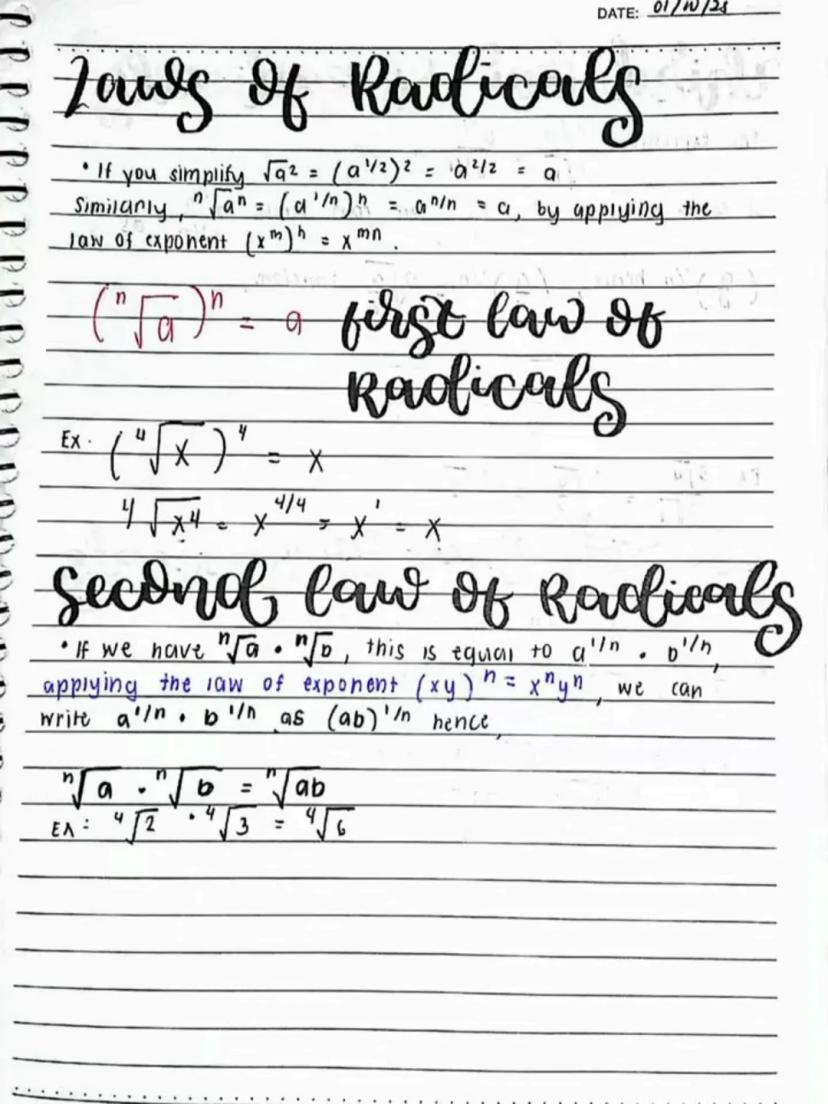 DATE: 01/10/23
Laws of Radicals
• If you simplify √a² = (a^1/2)² = a^2/2 = a
Similarly, ⁿ√aⁿ = (a^1/n)ⁿ = a^n/n = a, by applying the
law of exponent (x^m)^n = x^mn.
(ⁿ√a)ⁿ = a first law of
Radicals
Ex. (⁴√x)⁴ = x
⁴√x⁴ = x^4/4 = x^1 = x
Second law of Radicals
• If we have ⁿ√a • ⁿ√b, this is equal to a^1/n • b^1/n,
applying the law of exponent (xy)ⁿ = xⁿyⁿ, we can
write a^1/n • b^1/n as (ab)^1/n hence,
ⁿ√a • ⁿ√b = ⁿ√ab
Ex: ⁴√2 • ⁴√3 = ⁴√6